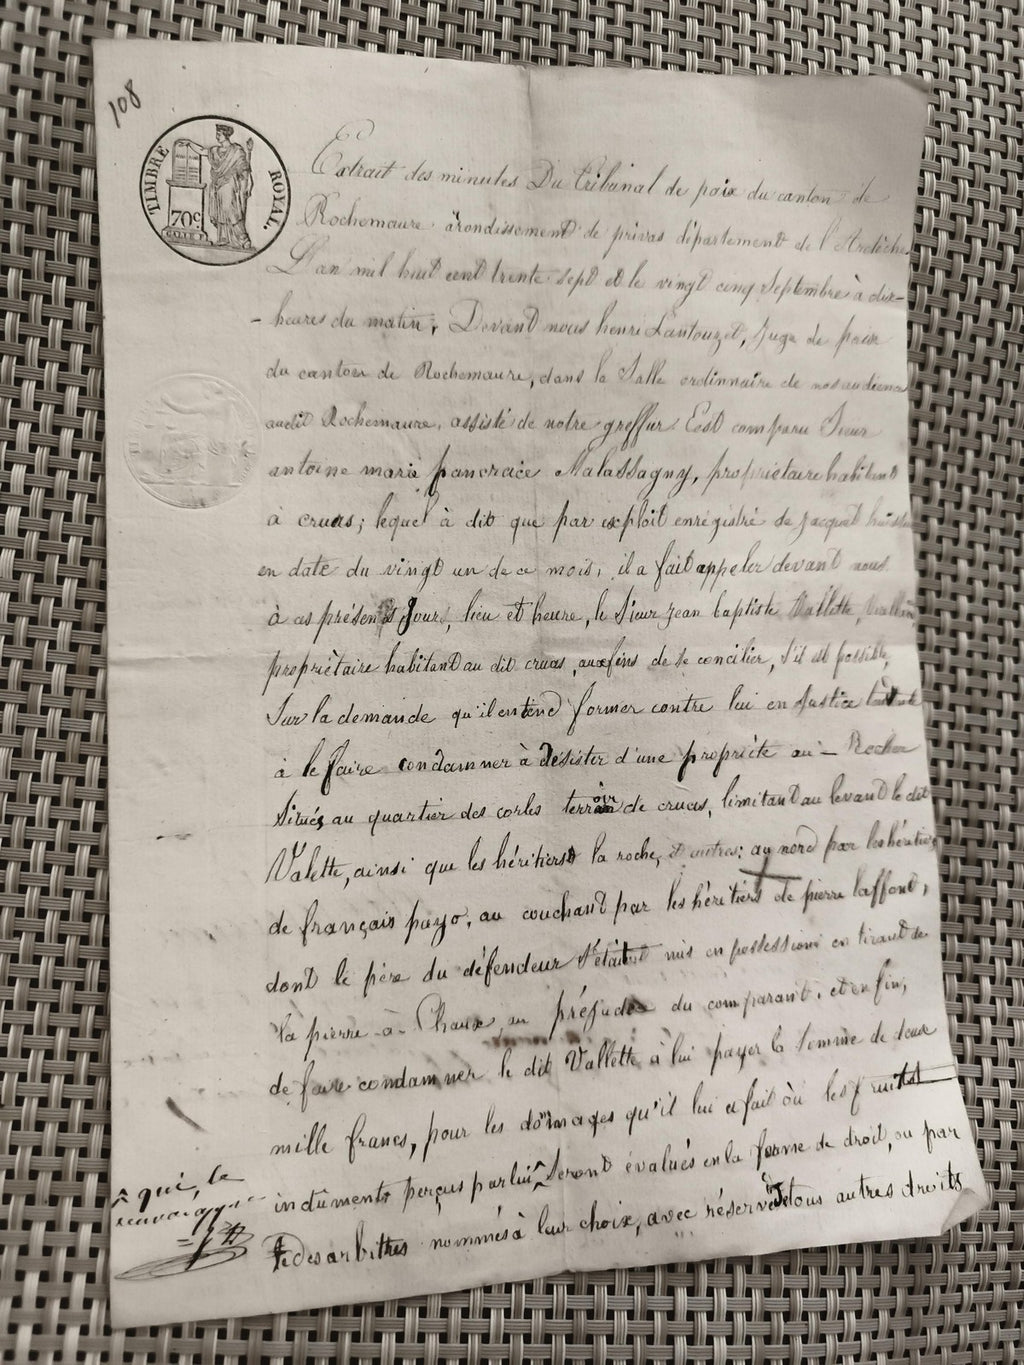 108
TIMBRE ROYAL.
70c
Extrait des minutes Du tribunal de paix du canton de
Rochemaure arondissement de privas département de l'Ardèche.
L'an mil huit cent trente sept et le vingt cinq Septembre à dix-
- heures du matin; Devant nous henri Lantouzet, Juge de paix
du canton de Rochemaure, dans la Salle ordinnaire de nos audiences
audit Rochemaure, assisté de notre greffier. Est comparu Sieur
antoine marie pancrace Malassagny, propriétaire habitant
à cruas; lequel à dit que par exploit enrégistré de Jacquet huissier
en date du vingt un de ce mois, il a fait appeler devant nous
à ces présents Jour, lieu et heure, le Sieur jean baptiste Vallette,
propriètaire habitant au dit cruas, aux fins de se concilier, s'il est possible,
Sur la demande qu'il entend former contre lui en Justice tendante
à le faire condamner à désister d'une propriéte au - Rocher
Situés au quartier des corles terroir de cruas, limitant au levant le dit
Valette, ainsi que les héritiers la roche, et autres; au nord par les héritiers
de françois payo, au couchant par les héritiers de pierre laffont,
dont le père du défendeur S'étaitent mis en possession en tirant de
la pierre à - Chaux, au préjudice du comparant. et enfin,
de faire condamner le dit Vallette à lui payer la Somme de deux
mille francs, pour les domages qu'il lui a fait où les fruits
indument perçus par lui, ^ Seront évalués en la forme de droit, ou par
des arbitres nommés à leur choix, avec réserve de tous autres droits
^ qui, le